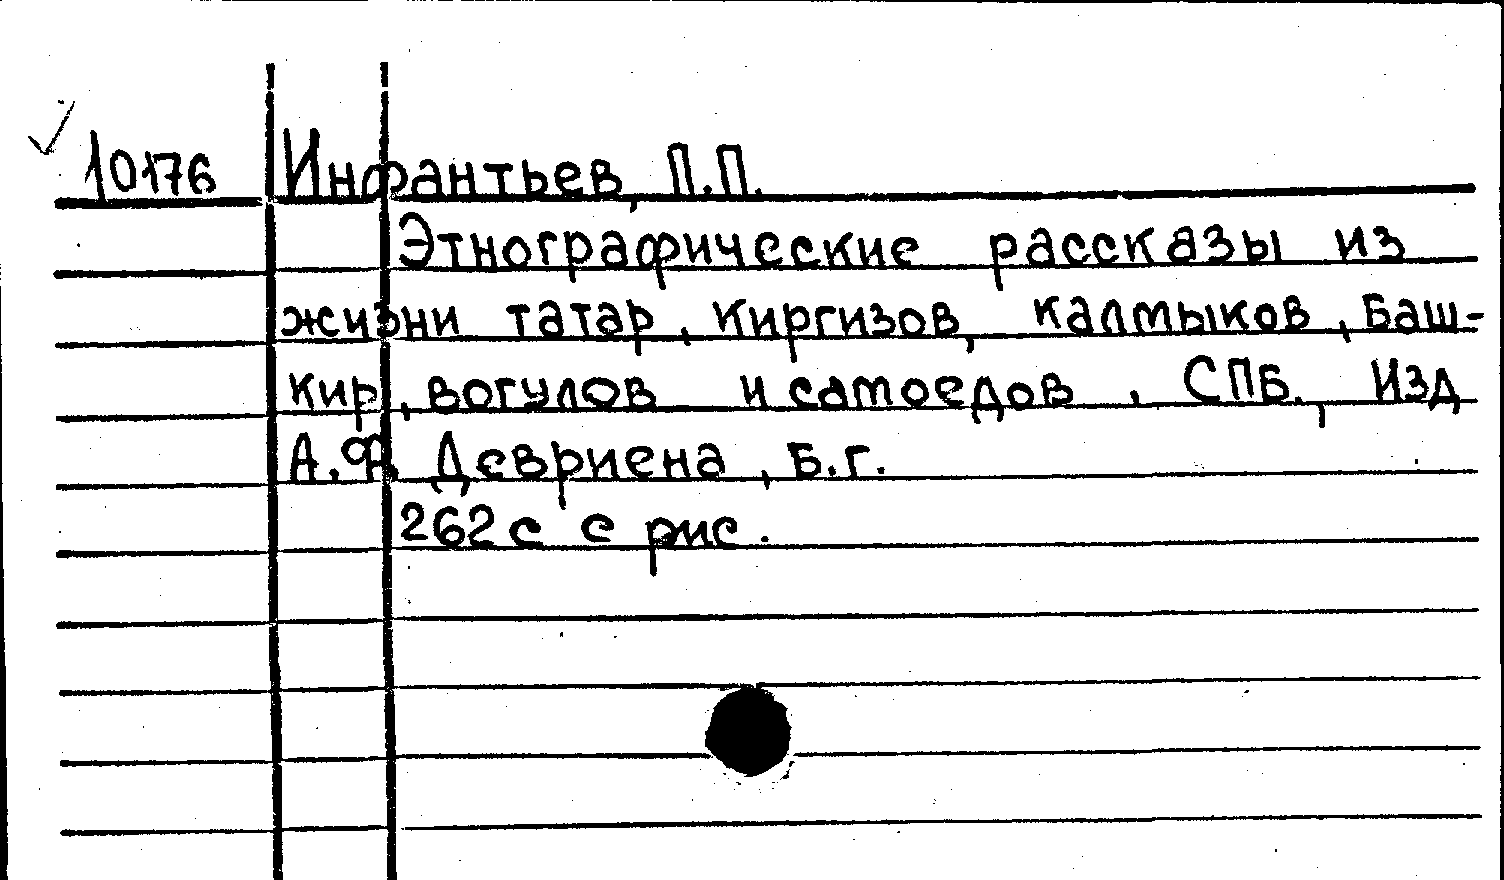 10176 Инфантьев, П.П.
Этнографические рассказы из
жизни татар, киргизов, калмыков, баш-
кир, вогулов и самоедов, СПБ., Изд
А.Ф. Девриена, б.г.
262 с с рис.